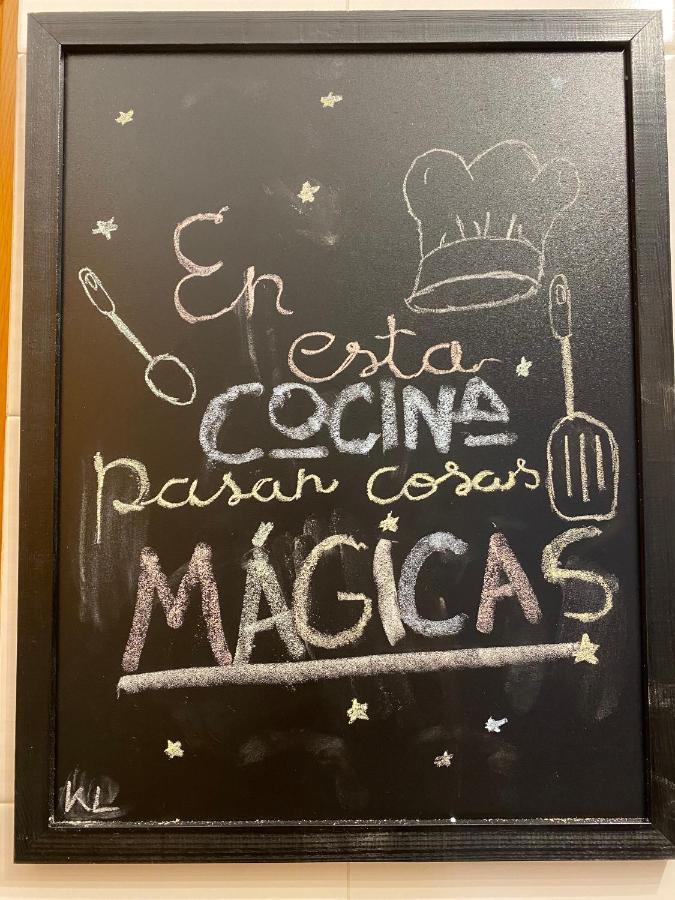 En
esta
COCINA
pasan cosas
MÁGICAS
KL